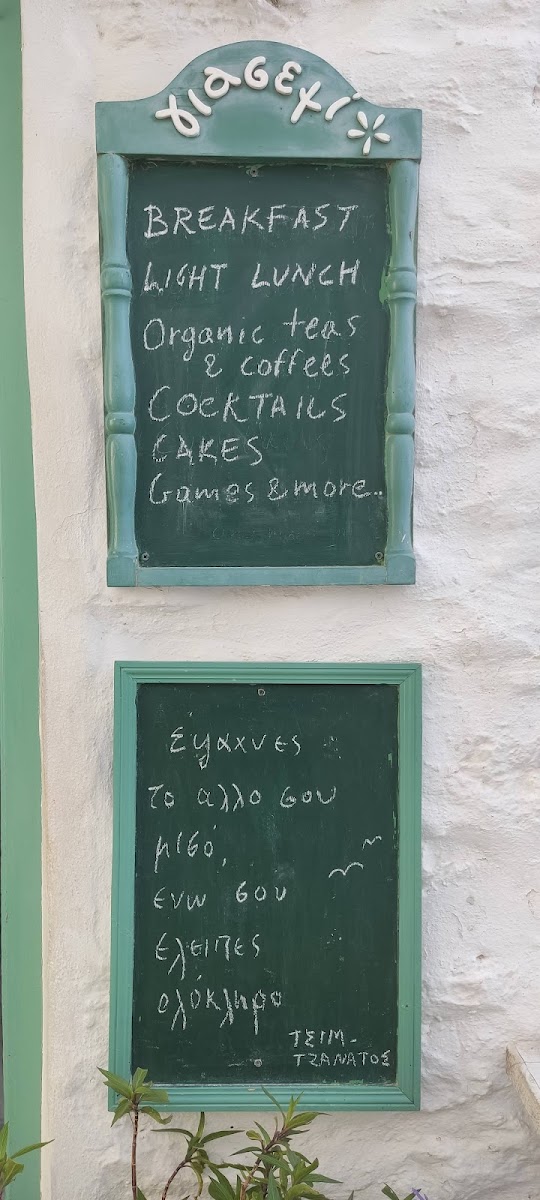 γιασεμί
BREAKFAST
LIGHT LUNCH
Organic teas
& coffees
COCKTAILS
CAKES
Games & more..
Έψαχνες
το αλλο σου
μισό,
ενω σου
έλειπες
ολόκληρο
ΤΣΙΜ-
ΤΖΑΝΑΤΟΣ